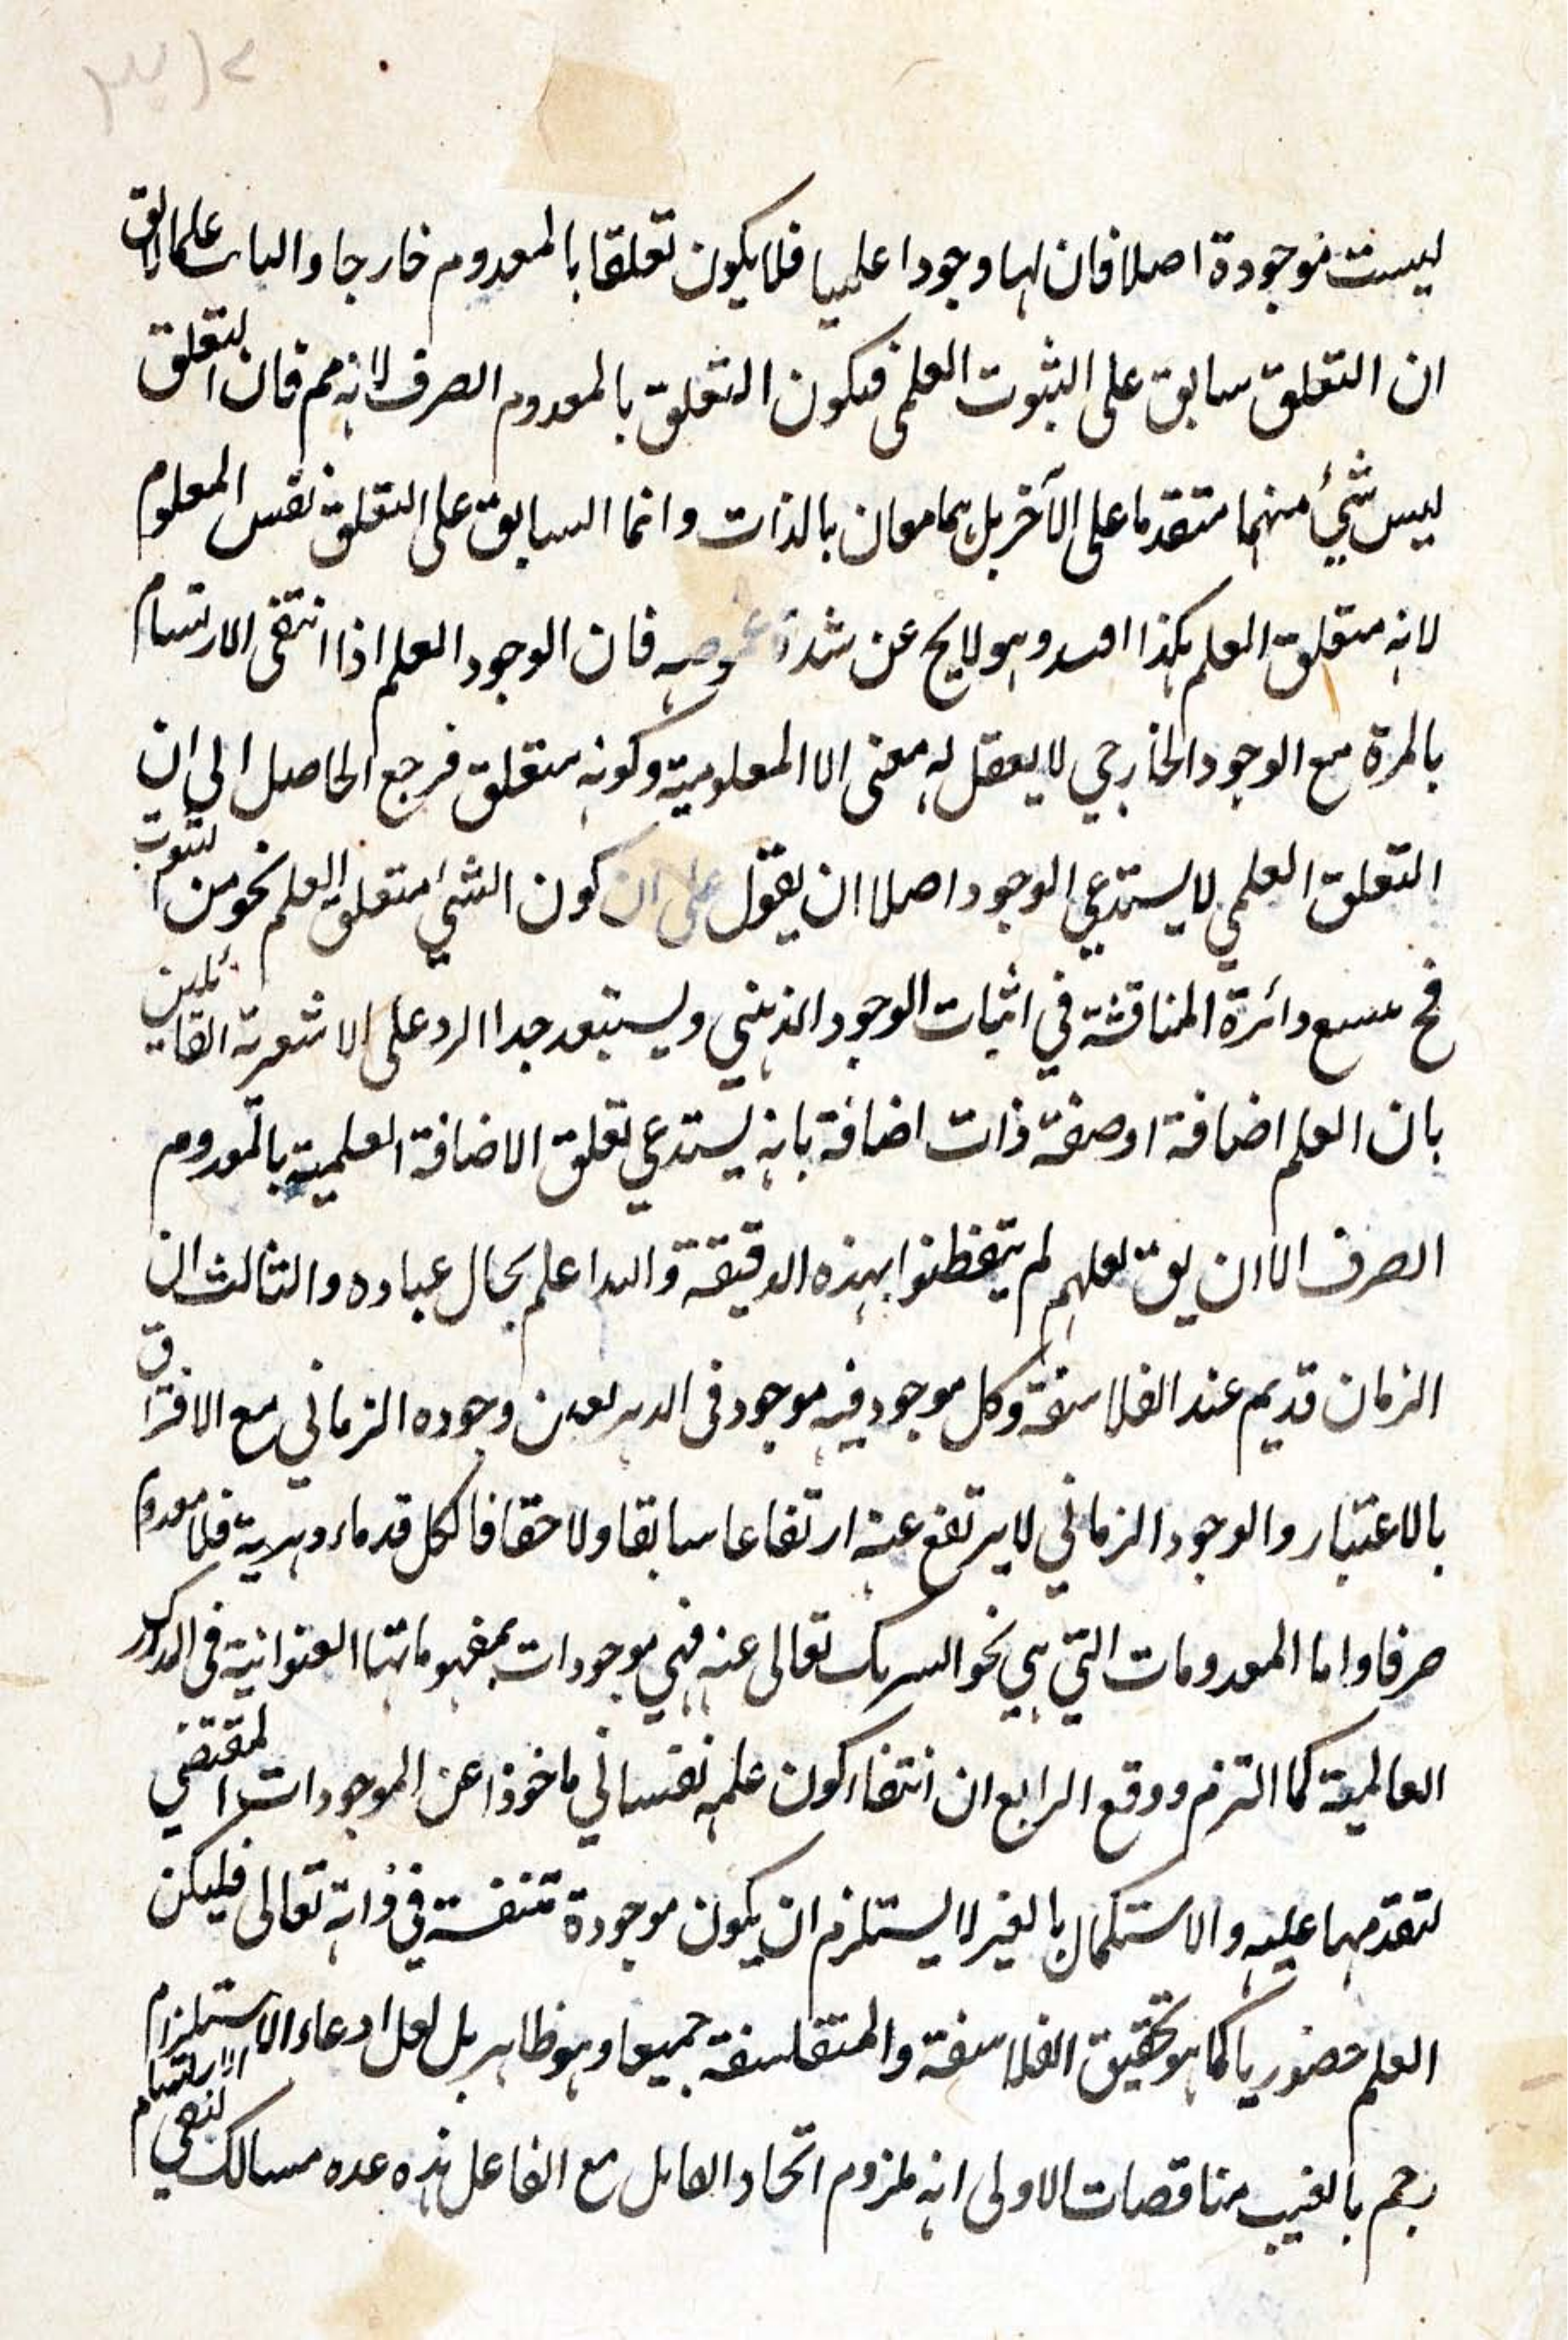 ليست موجودة اصلا فان لها وجودا علميا فلا يكون تعلقا بالمعدوم خارجا وايابك علما لا يق
ان التعلق سابق على الثبوت العلمى فيكون التعلق بالمعدوم الصرف لانه مم فان التعلق
ليس شئ منهما متقدما على الآخر بل هما معان بالذات وانما السابق على التعلق نفس المعلوم
لانه متعلق العلم هكذا افيد وهو لايخ عن شدة غموضه فان الوجود العلم اذا انتفى الارتسام
بالمرة مع الوجود الخارجي لا يعقل له معنى الا المعلومية وكونه متعلق فرجع الحاصل الى ان
التعلق العلمي لا يستدعي الوجود اصلا ان يقول على ان كون الشئ متعلق العلم نحو من الثبوت
فح يسع دائرة المناقشة في اثبات الوجود الذهني ويستبعد جدا الرد على الاشعرية القائلين
بان العلم اضافة او صفة ذات اضافة بانه يستدعي تعلق الاضافة العلمية بالمعدوم
الصرف الا ان يق لعلهم لم يتفطنوا بهذه الدقيقة والله اعلم بحال عباده والثالث ان
الزمان قديم عند الفلاسفة وكل موجود فيه موجود فى الدهر بعين وجوده الزماني مع الافتراق
بالاعتبار والوجود الزماني لا يرتفع عنه ارتفاعا سابقا ولاحقا فالكل قدماء دهرية فلا معدوم
صرفا واما المعدومات التي هي نحو الشريك تعالى عنه فهي موجودات بمفهوماتها العنوانية فى المدارك
العالمية كما التزم ووقع الرابع ان انتفاء كون علمه نفساني ماخوذا عن الموجودات المقتضي
لتقدمها عليه والاستكمال بالغير لا يستلزم ان يكون موجودة بنفسه في ذاته تعالى فليكن
العلم حضوريا كما هو تحقيق الفلاسفة والمتفلسفة جميعا وهو ظاهر بل لعل ادعاء الاستلزام
رجم بالغيب مناقضات الاولى انه ملزوم اتحاد القابل مع الفاعل هذه عده مسالك لنفى الارتسام